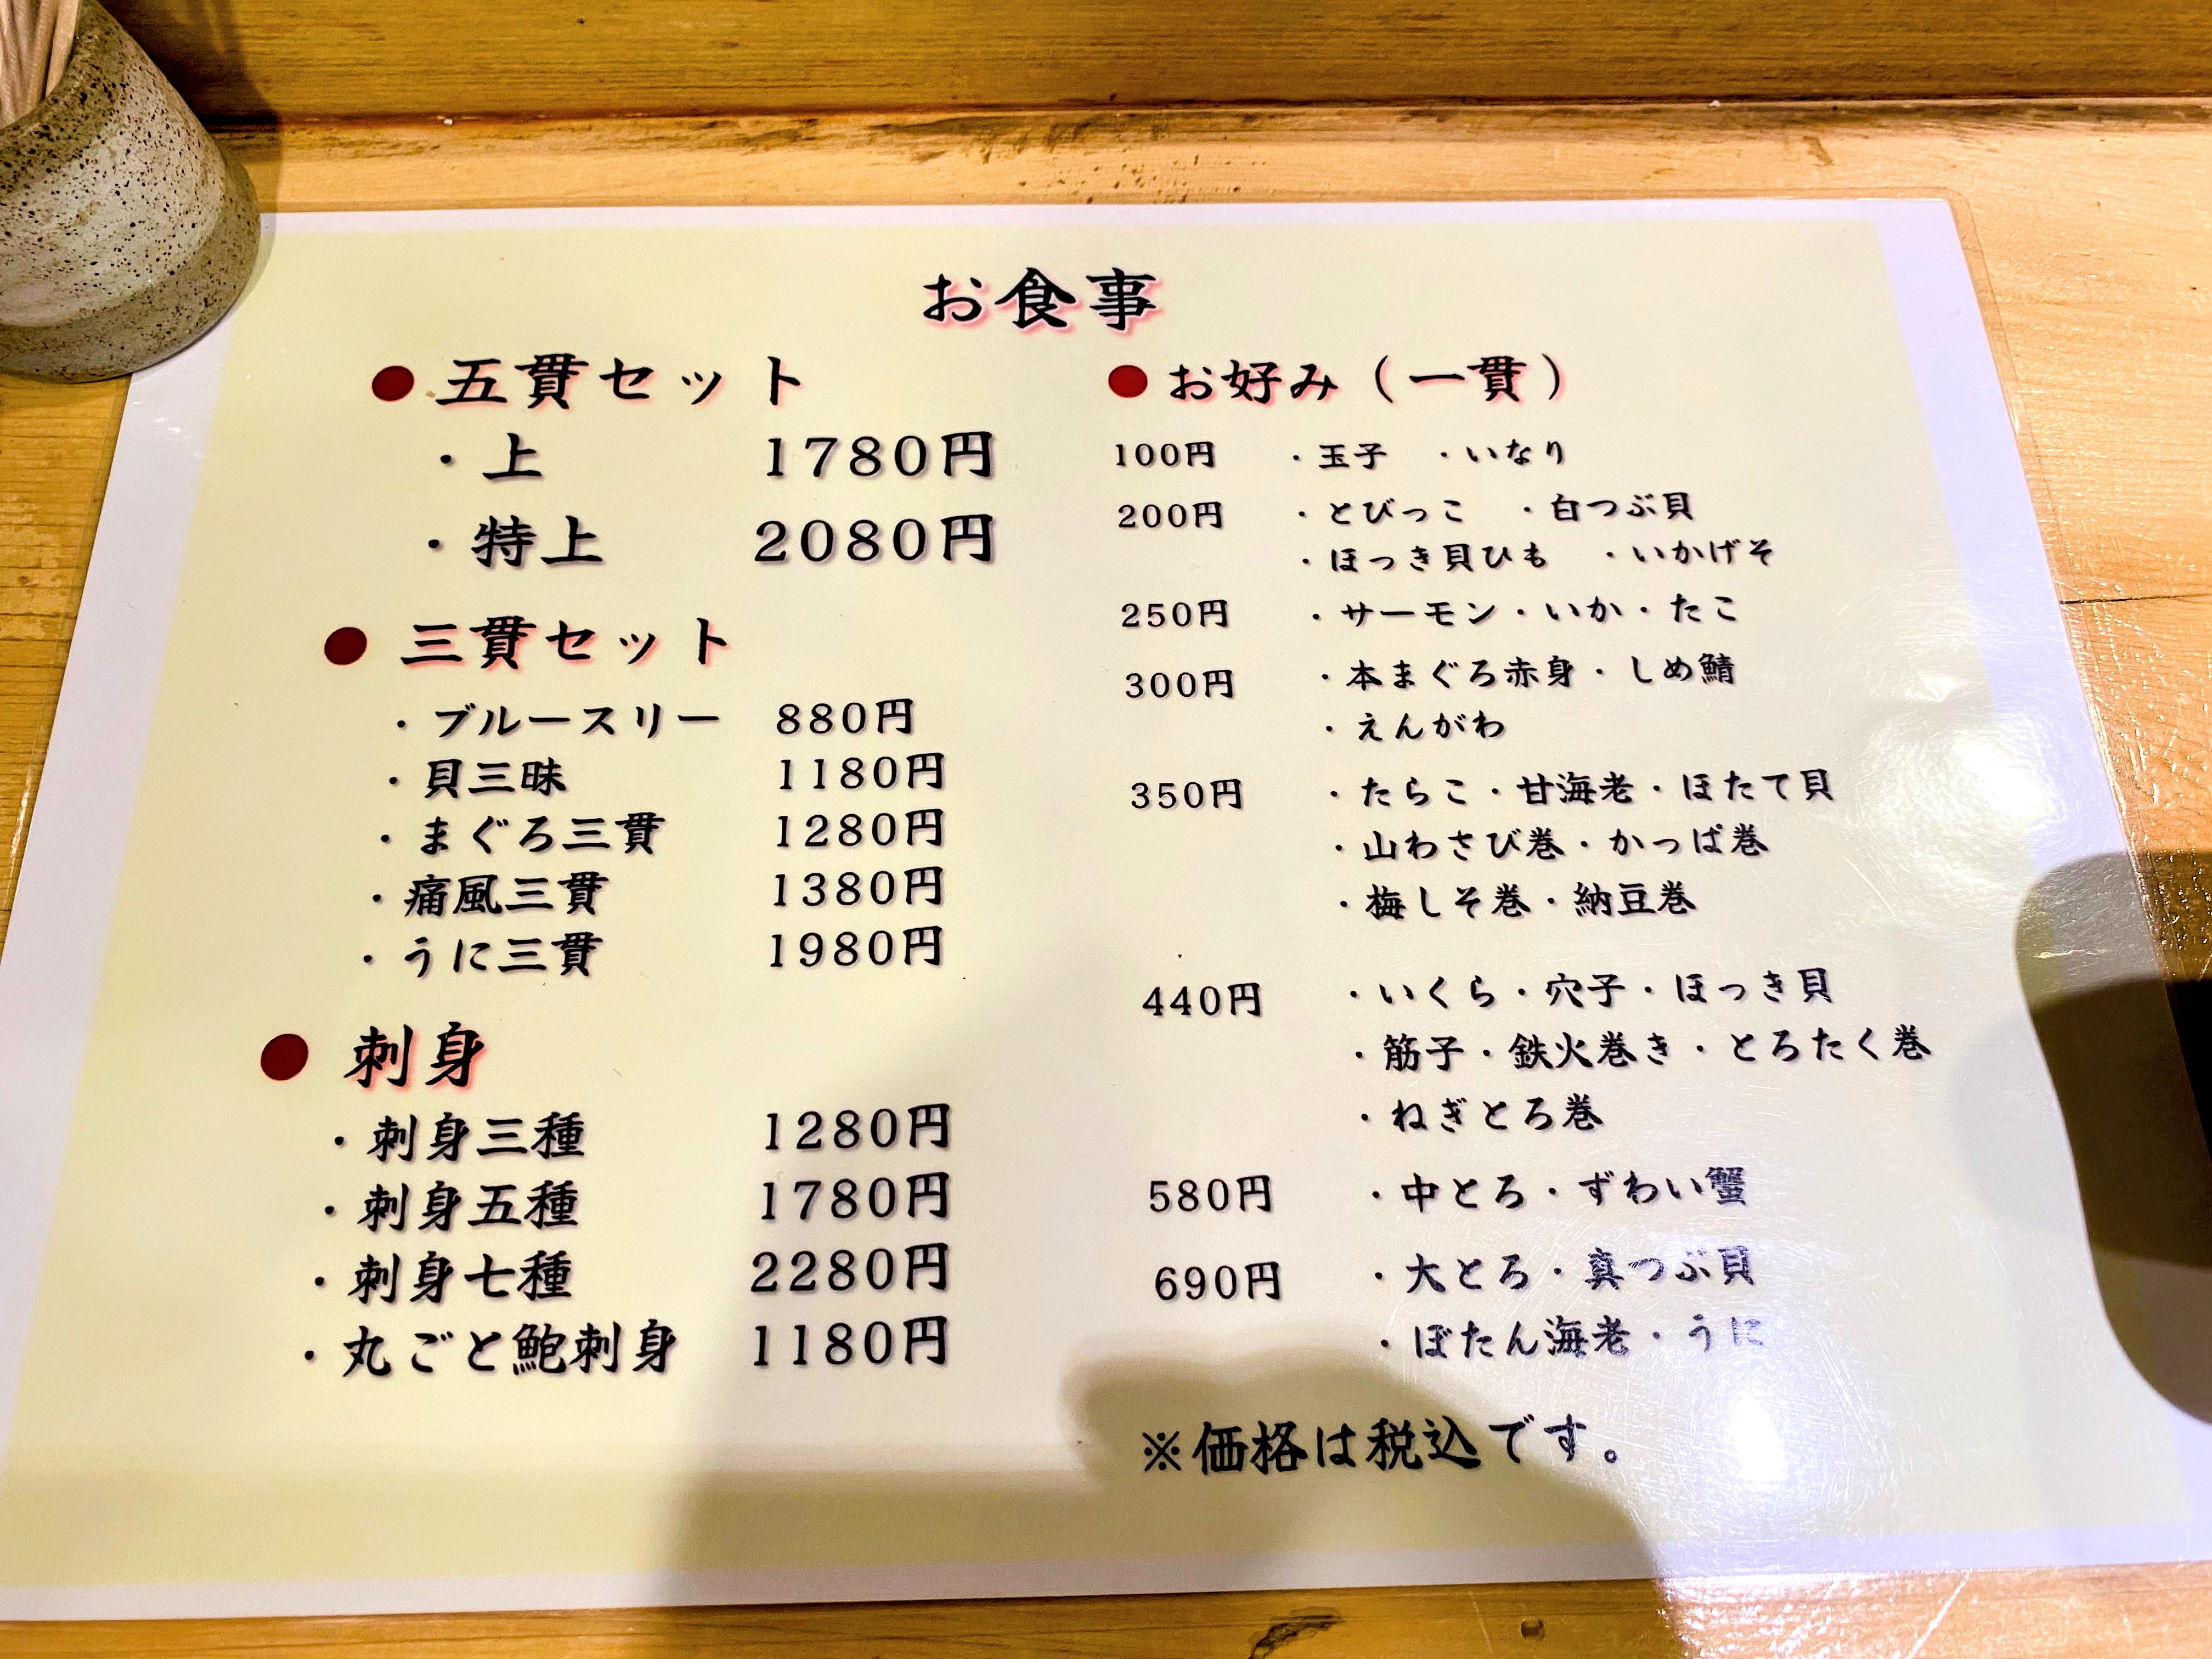 お食事
● 五貫セット
・上 1780円
・特上 2080円
● 三貫セット
・ブルースリー 880円
・貝三昧 1180円
・まぐろ三貫 1280円
・痛風三貫 1380円
・うに三貫 1980円
● 刺身
・刺身三種 1280円
・刺身五種 1780円
・刺身七種 2280円
・丸ごと鮑刺身 1180円
● お好み（一貫）
100円 ・玉子 ・いなり
200円 ・とびっこ ・白つぶ貝
・ほっき貝ひも ・いかげそ
250円 ・サーモン・いか・たこ
300円 ・本まぐろ赤身・しめ鯖
・えんがわ
350円 ・たらこ・甘海老・ほたて貝
・山わさび巻・かっぱ巻
・梅しそ巻・納豆巻
440円 ・いくら・穴子・ほっき貝
・筋子・鉄火巻き・とろたく巻
・ねぎとろ巻
580円 ・中とろ・ずわい蟹
690円 ・大とろ・真つぶ貝
・ぼたん海老・うに
※価格は税込です。